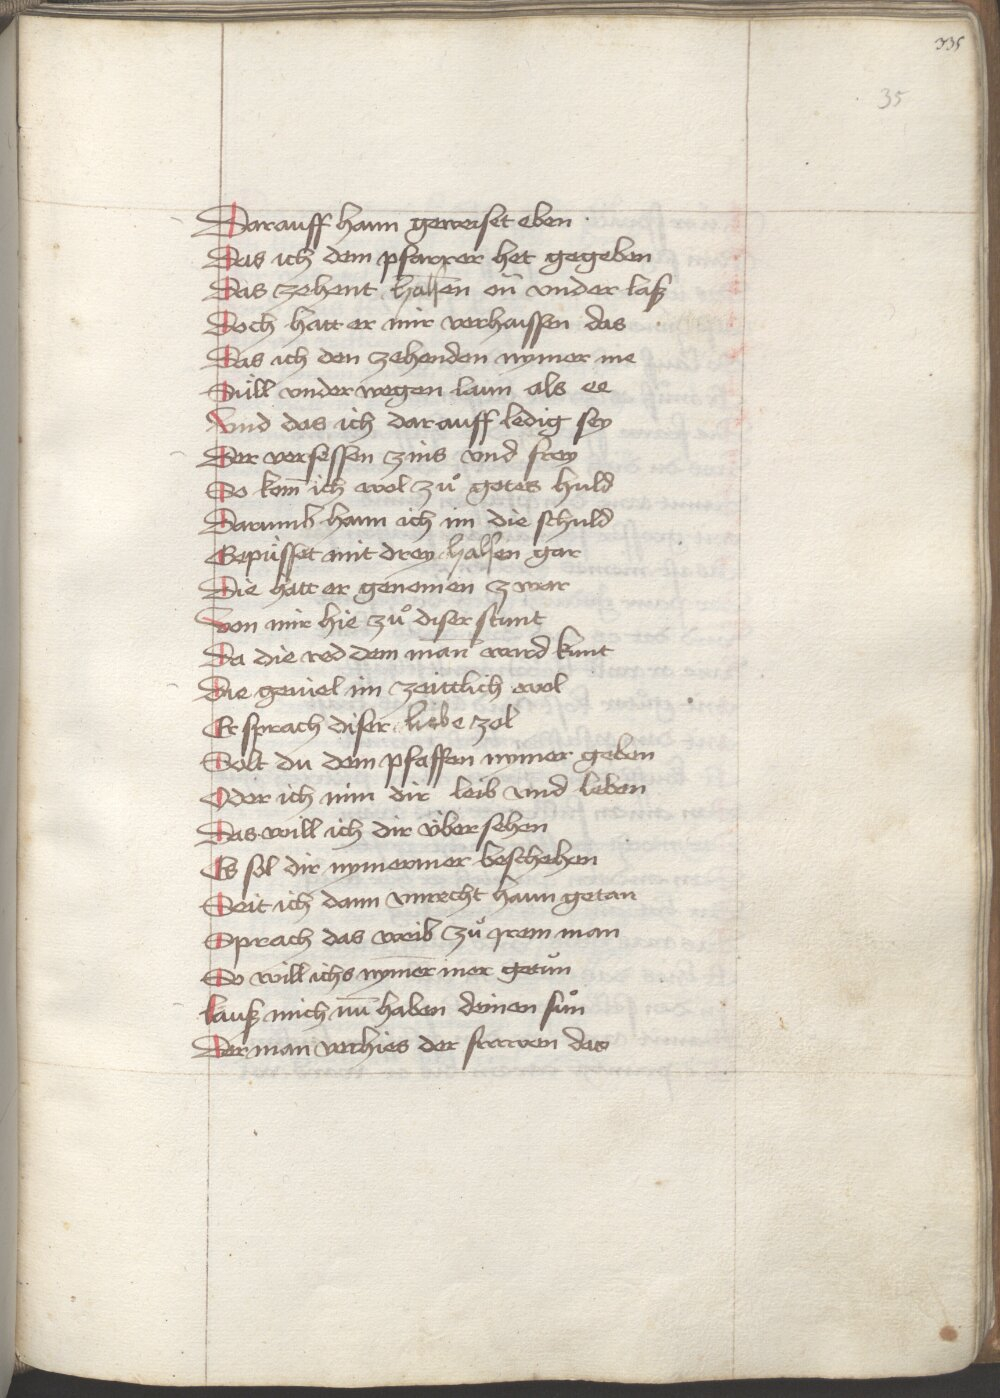 335
35
Darauff hann geweiset eben
Das ich dem pfarrer het gegeben
Das zehent halsen on vnder laß
Doch hatt er mir verhaissen das
Das ich den zehenden nymer me
Süll vnder wegen laun als ee
Vnd das ich darauff ledig sey
Der versessen zins vnd frey
So kom̄ ich wol zuͦ gotes huld
Darumb hann ich im die schuld
Gepüsset mit drey halsen gar
Die hatt er genomen zwar
Von mir hie zuͦ diser stunt
Da die red dem man ward kunt
Die geuiel im zeittlich wol
Er sprach diser liebe zol
Solt du dem pfaffen nymer geben
Oder ich nim dir leib vnd leben
Das will ich dir übersehen
Es sol dir nymermer beschehen
Seit ich dann vnrecht haun getan
Sprach das weib zuͦ jrem man
So will ichs nymermer getuͦn
lauß mich nū haben deinen suͦn
Der man verhies der frawen das